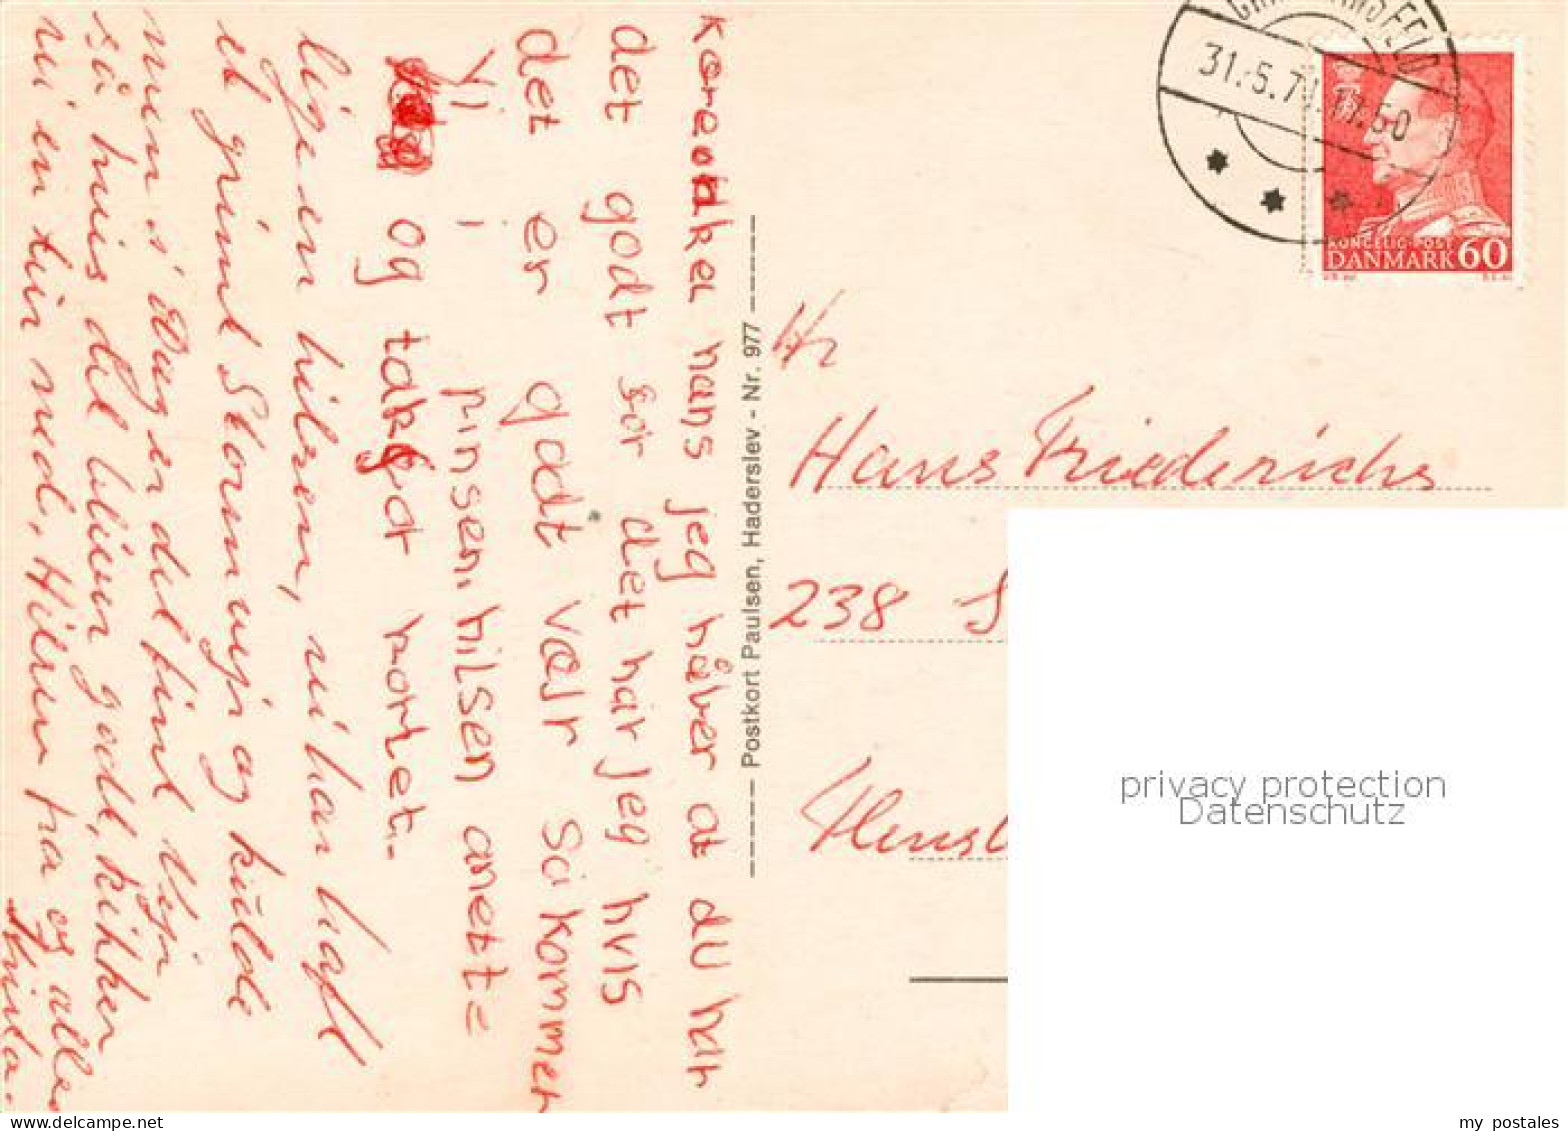 kære onkel hans jeg håber at du har
det godt for det har jeg hvis
det er godt vejr så kommer
Vi i pinsen. hilsen anette
og tak for kortet.
lige en hilsen, vi har haft
et grimt Stormvejr og kulde
men i Dag er det fint Vejr
så hvis det bliver godt, kikker
vi en tur ned, Hilsen fra os alle
- Postkort Paulsen, Haderslev - Nr. 977 -
31.5.71.17.50
KONGELIG POST
DANMARK 60
Hr
Hans Friederichs
238 S
Flensb
privacy protection
Datenschutz
my postales